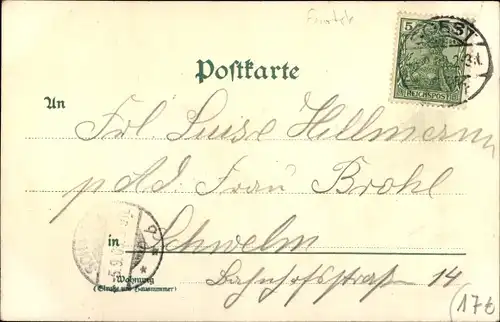 Postkarte
5
REICHSPOST
An
Frl. Luise Hellmann
p. Ad. Frau Brohl
in Schwelm
Bahnhofsstraße 14
Wohnung
(Straße und Hausnummer)
17t